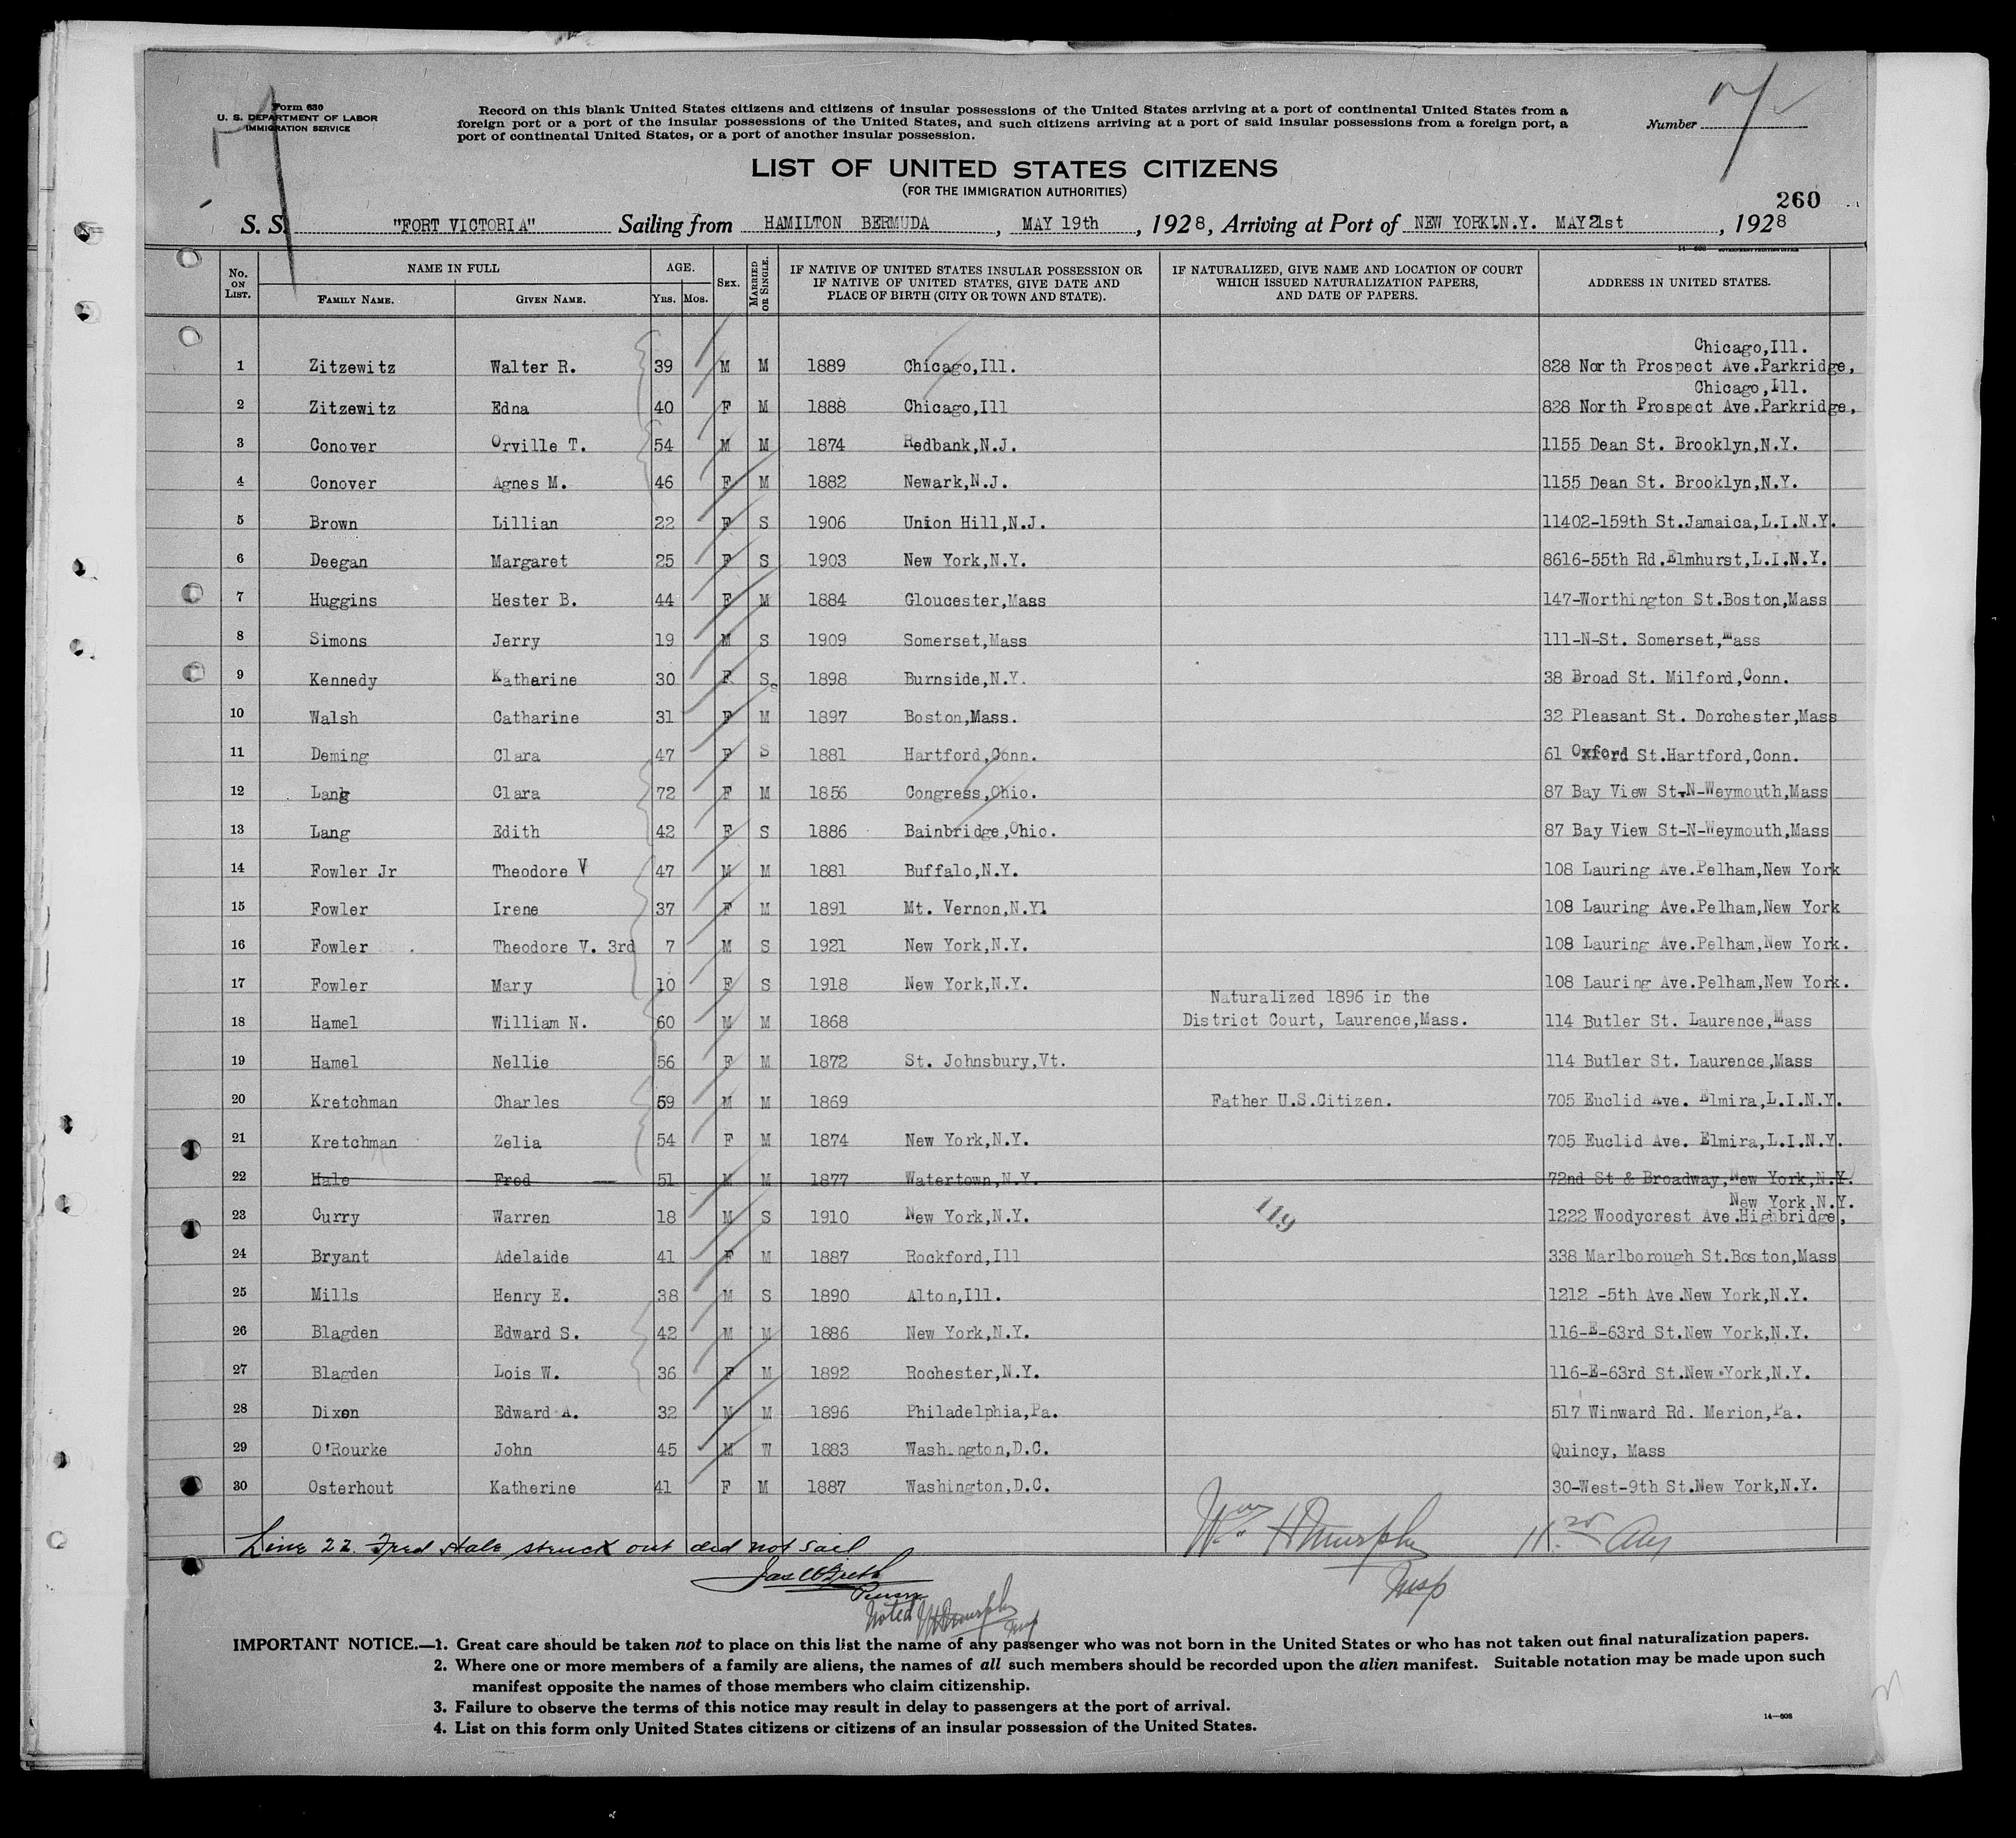 Form 630
U. S. DEPARTMENT OF LABOR
IMMIGRATION SERVICE
Record on this blank United States citizens and citizens of insular possessions of the United States arriving at a port of continental United States from a
foreign port or a port of the insular possessions of the United States, and such citizens arriving at a port of said insular possessions from a foreign port, a
port of continental United States, or a port of another insular possession.
Number
LIST OF UNITED STATES CITIZENS
(FOR THE IMMIGRATION AUTHORITIES)
260
S. S. "FORT VICTORIA" Sailing from HAMILTON BERMUDA, MAY 19th, 1928, Arriving at Port of NEW YORK.N.Y. MAY21st, 1928
No. ON LIST. NAME IN FULL FAMILY NAME. GIVEN NAME. AGE. YRS. MOS. SEX. MARRIED OR SINGLE. IF NATIVE OF UNITED STATES INSULAR POSSESSION OR IF NATIVE OF UNITED STATES, GIVE DATE AND PLACE OF BIRTH (CITY OR TOWN AND STATE). IF NATURALIZED, GIVE NAME AND LOCATION OF COURT WHICH ISSUED NATURALIZATION PAPERS, AND DATE OF PAPERS. ADDRESS IN UNITED STATES.
Chicago,Ill.
1 Zitzewitz Walter R. 39 M M 1889 Chicago,Ill. 828 North Prospect Ave.Parkridge,
Chicago,Ill.
2 Zitzewitz Edna 40 F M 1888 Chicago,Ill 828 North Prospect Ave.Parkridge,
3 Conover Orville T. 54 M M 1874 Redbank,N.J. 1155 Dean St. Brooklyn,N.Y.
4 Conover Agnes M. 46 F M 1882 Newark,N.J. 1155 Dean St. Brooklyn,N.Y.
5 Brown Lillian 22 F S 1906 Union Hill,N.J. 11402-159th St.Jamaica,L.I.N.Y.
6 Deegan Margaret 25 F S 1903 New York,N.Y. 8616-55th Rd.Elmhurst,L.I.N.Y.
7 Huggins Hester B. 44 F M 1884 Gloucester,Mass 147-Worthington St.Boston,Mass
8 Simons Jerry 19 M S 1909 Somerset,Mass 111-N-St. Somerset,Mass
9 Kennedy Katharine 30 F S 1898 Burnside,N.Y. 38 Broad St. Milford,Conn.
10 Walsh Catharine 31 F M 1897 Boston,Mass. 32 Pleasant St. Dorchester,Mass
11 Deming Clara 47 F S 1881 Hartford,Conn. 61 Oxford St.Hartford,Conn.
12 Lang Clara 72 F M 1856 Congress,Ohio. 87 Bay View St-N-Weymouth,Mass
13 Lang Edith 42 F S 1886 Bainbridge,Ohio. 87 Bay View St-N-Weymouth,Mass
14 Fowler Jr Theodore V 47 M M 1881 Buffalo,N.Y. 108 Lauring Ave.Pelham,New York
15 Fowler Irene 37 F M 1891 Mt. Vernon,N.Yl 108 Lauring Ave.Pelham,New York
16 Fowler Theodore V. 3rd 7 M S 1921 New York,N.Y. 108 Lauring Ave.Pelham,New York.
17 Fowler Mary 10 F S 1918 New York,N.Y. 108 Lauring Ave.Pelham,New York.
Naturalized 1896 in the
18 Hamel William N. 60 M M 1868 District Court, Laurence,Mass. 114 Butler St. Laurence,Mass
19 Hamel Nellie 56 F M 1872 St. Johnsbury,Vt. 114 Butler St. Laurence,Mass
20 Kretchman Charles 59 M M 1869 Father U.S.Citizen. 705 Euclid Ave. Elmira,L.I.N.Y.
21 Kretchman Zelia 54 F M 1874 New York,N.Y. 705 Euclid Ave. Elmira,L.I.N.Y.
22 Hale Fred 51 M M 1877 Watertown,N.Y. 72nd St & Broadway,New York,N.Y.
New York,N.Y.
23 Curry Warren 18 M S 1910 New York,N.Y. 119 1222 Woodycrest Ave.Highbridge,
24 Bryant Adelaide 41 F M 1887 Rockford,Ill 338 Marlborough St.Boston,Mass
25 Mills Henry E. 38 M S 1890 Alton,Ill. 1212 -5th Ave.New York,N.Y.
26 Blagden Edward S. 42 M M 1886 New York,N.Y. 116-E-63rd St.New York,N.Y.
27 Blagden Lois W. 36 F M 1892 Rochester,N.Y. 116-E-63rd St.New York,N.Y.
28 Dixon Edward A. 32 M M 1896 Philadelphia,Pa. 517 Winward Rd. Merion,Pa.
29 O'Rourke John 45 M W 1883 Washington,D.C. Quincy, Mass
30 Osterhout Katherine 41 F M 1887 Washington,D.C. 30-West-9th St.New York,N.Y.
Line 22. Fred Hale struck out did not sail
Wm H Murphy
Insp
Noted
IMPORTANT NOTICE.—1. Great care should be taken not to place on this list the name of any passenger who was not born in the United States or who has not taken out final naturalization papers.
2. Where one or more members of a family are aliens, the names of all such members should be recorded upon the alien manifest. Suitable notation may be made upon such
manifest opposite the names of those members who claim citizenship.
3. Failure to observe the terms of this notice may result in delay to passengers at the port of arrival.
4. List on this form only United States citizens or citizens of an insular possession of the United States.
14—608